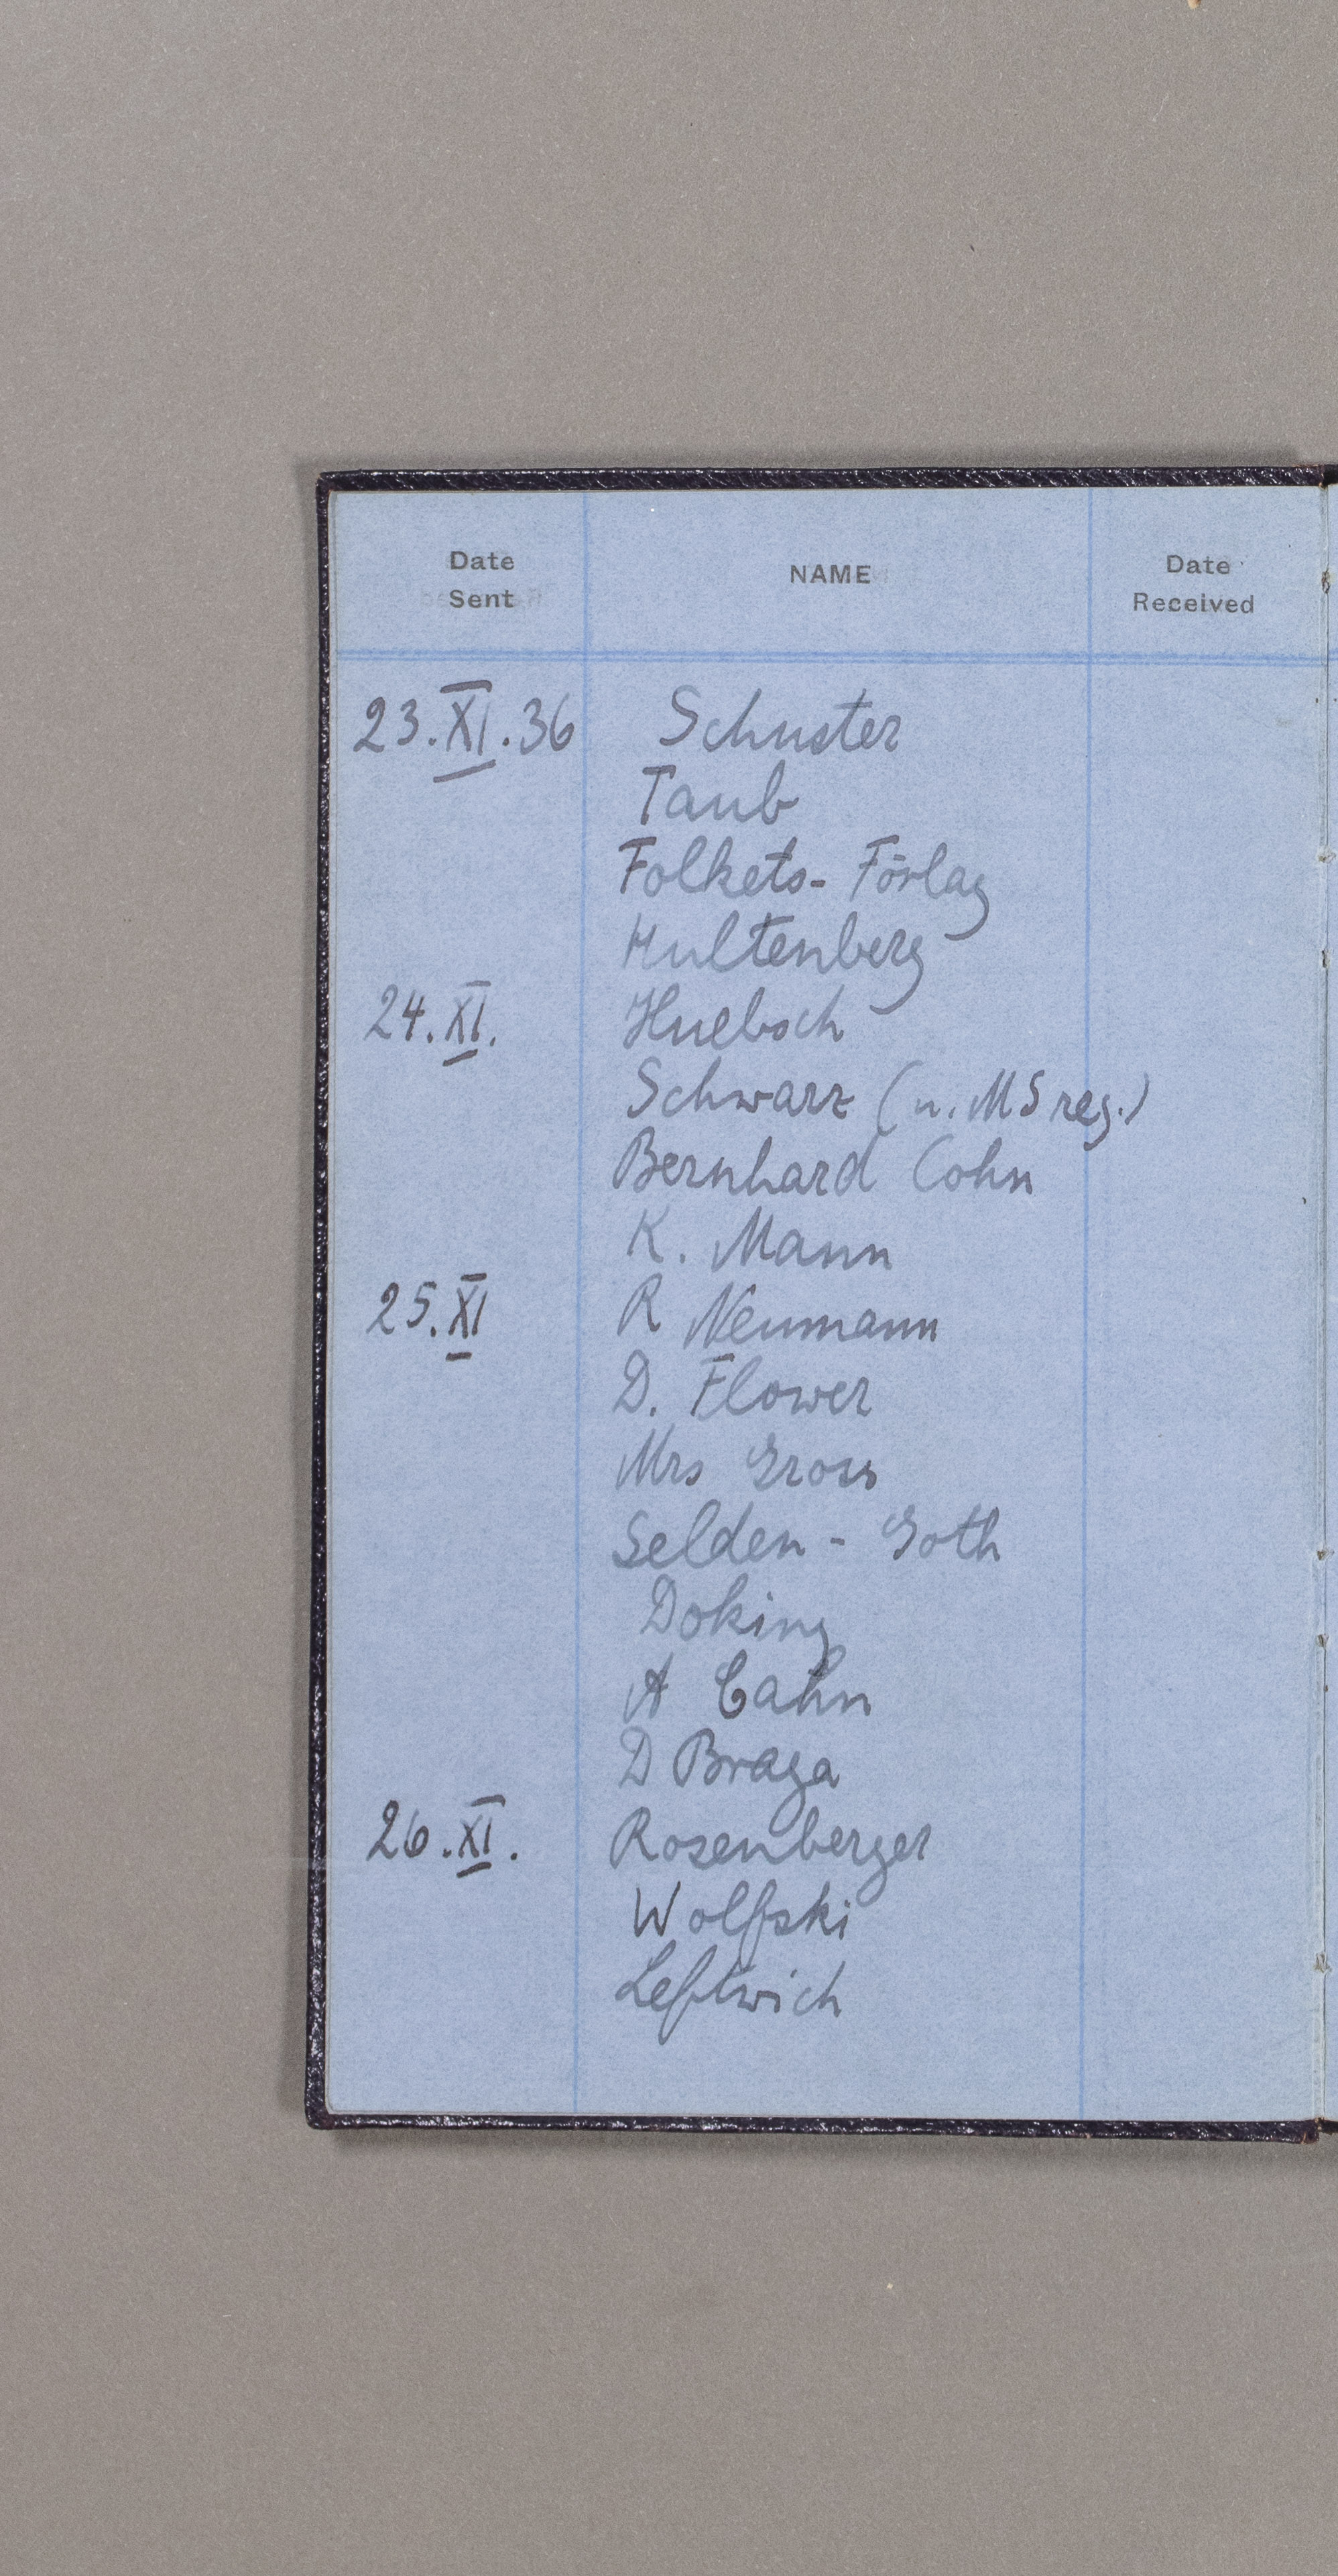 Date Sent NAME Date Received
23.XI.36 Schuster
Taub
Folkets-Förlag
Hultenberg
24.XI. Huebsch
Schwarz (u. MS reg.)
Bernhard Cohn
K. Mann
25.XI R Neumann
D. Flower
Mrs Gross
Selden-Goth
Doking
A Cahn
D Braga
26.XI. Rosenberger
Wolfski
Leftwich